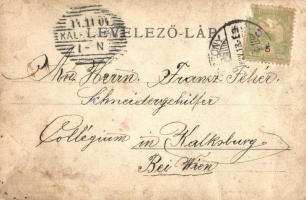 LEVELEZŐ-LAP
14.11.04
KAL
I-N
An Herrn Franz Feher
Schneidergehilfe
Collegium in Kalksburg
Bei Wien